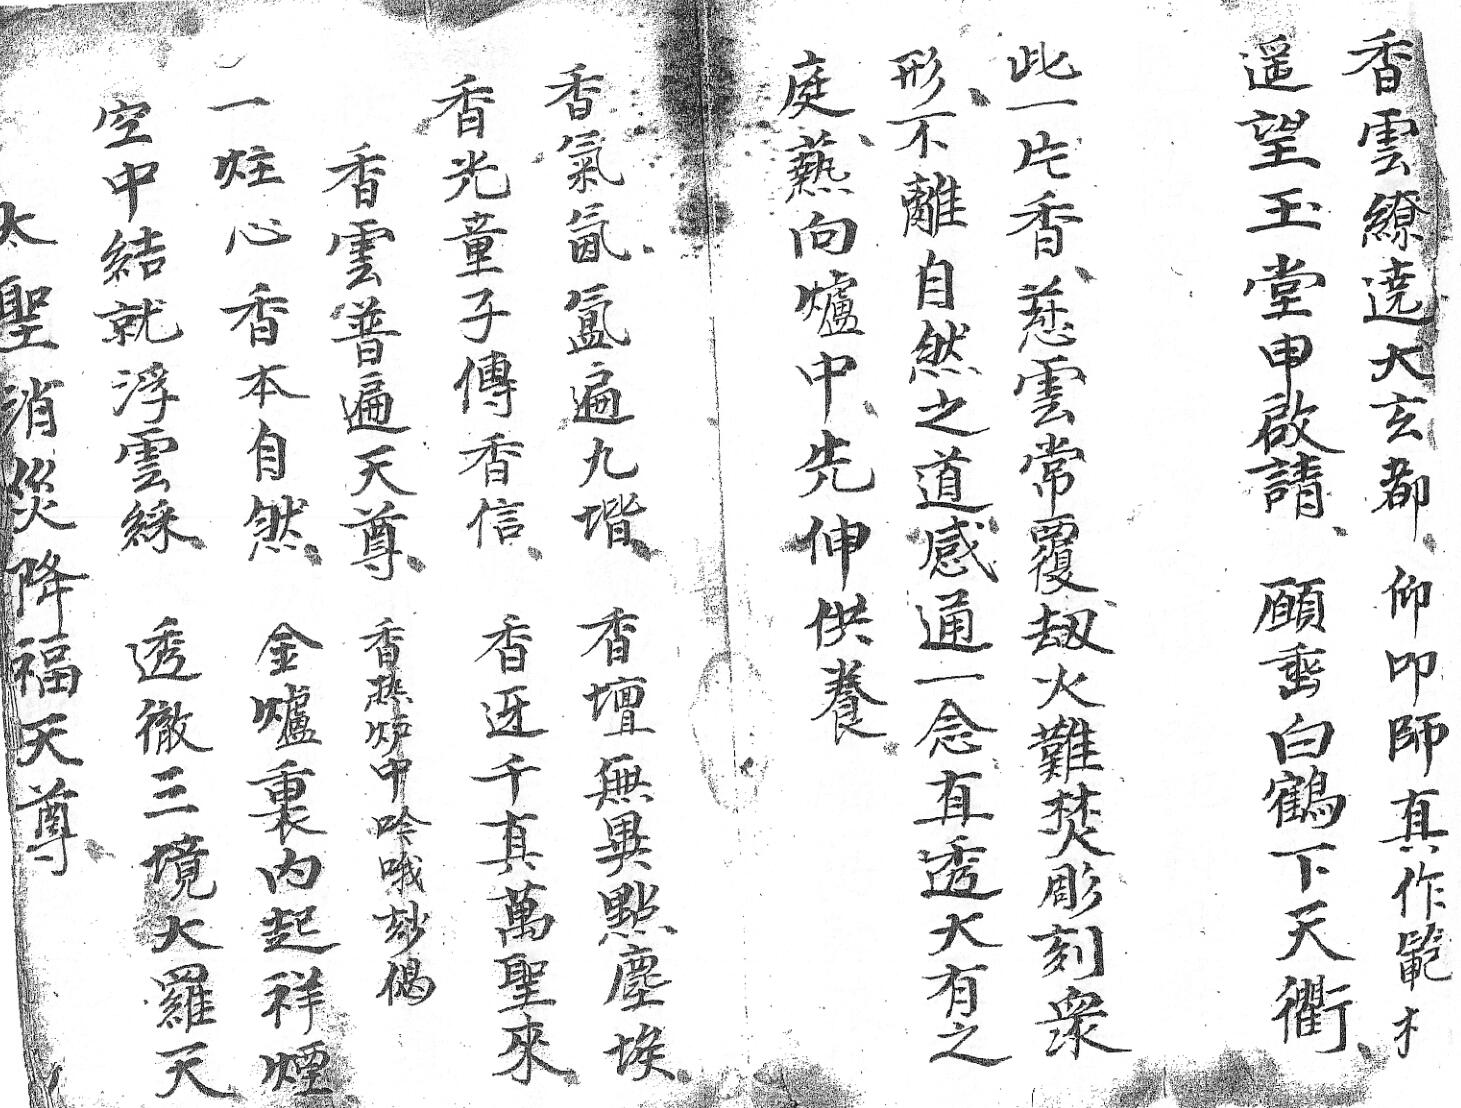 香雲繚遶大玄都 仰叩師真作範才
遥望玉堂申啟請 願垂白鶴下天衢
此一片香慈雲常覆劫火難焚彫刻衆
形不離自然之道感通一念直透大有之
庭爇向爐中先伸供養
香氣氤氳遍九堦 香壇無異點塵埃
香光童子傳香信 香迓千真萬聖來
香雲普遍天尊 香热炉中吟哦玅偈
一炷心香本自然 金爐裏内起祥煙
空中結就浮雲綵 透徹三境大羅天
太聖消災降福天尊